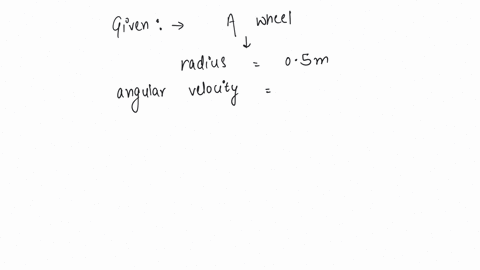 Given :→ A wheel
↓
radius = 0.5m
angular velocity =